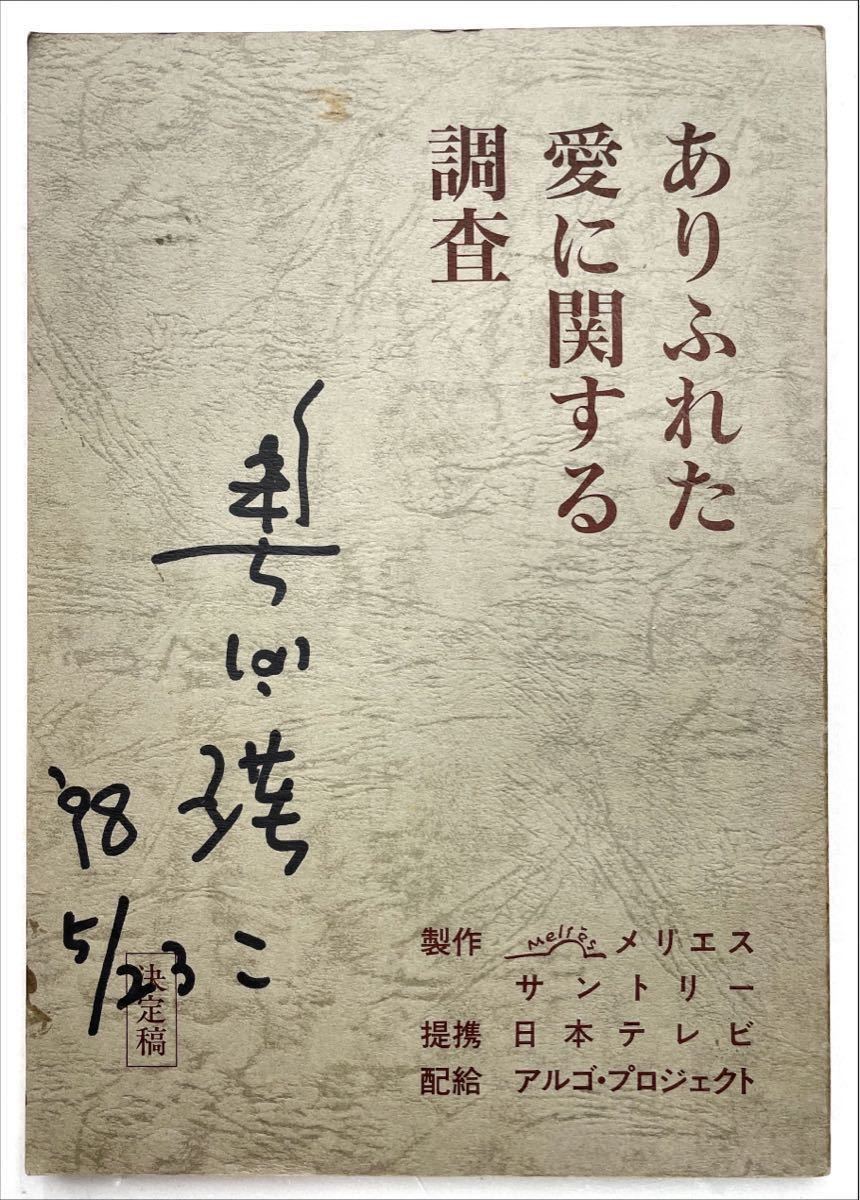 ありふれた
愛に関する
調査
奥田瑛二
'98
5/23
決定稿
製作 Meliès メリエス
サントリー
提携 日本テレビ
配給 アルゴ・プロジェクト